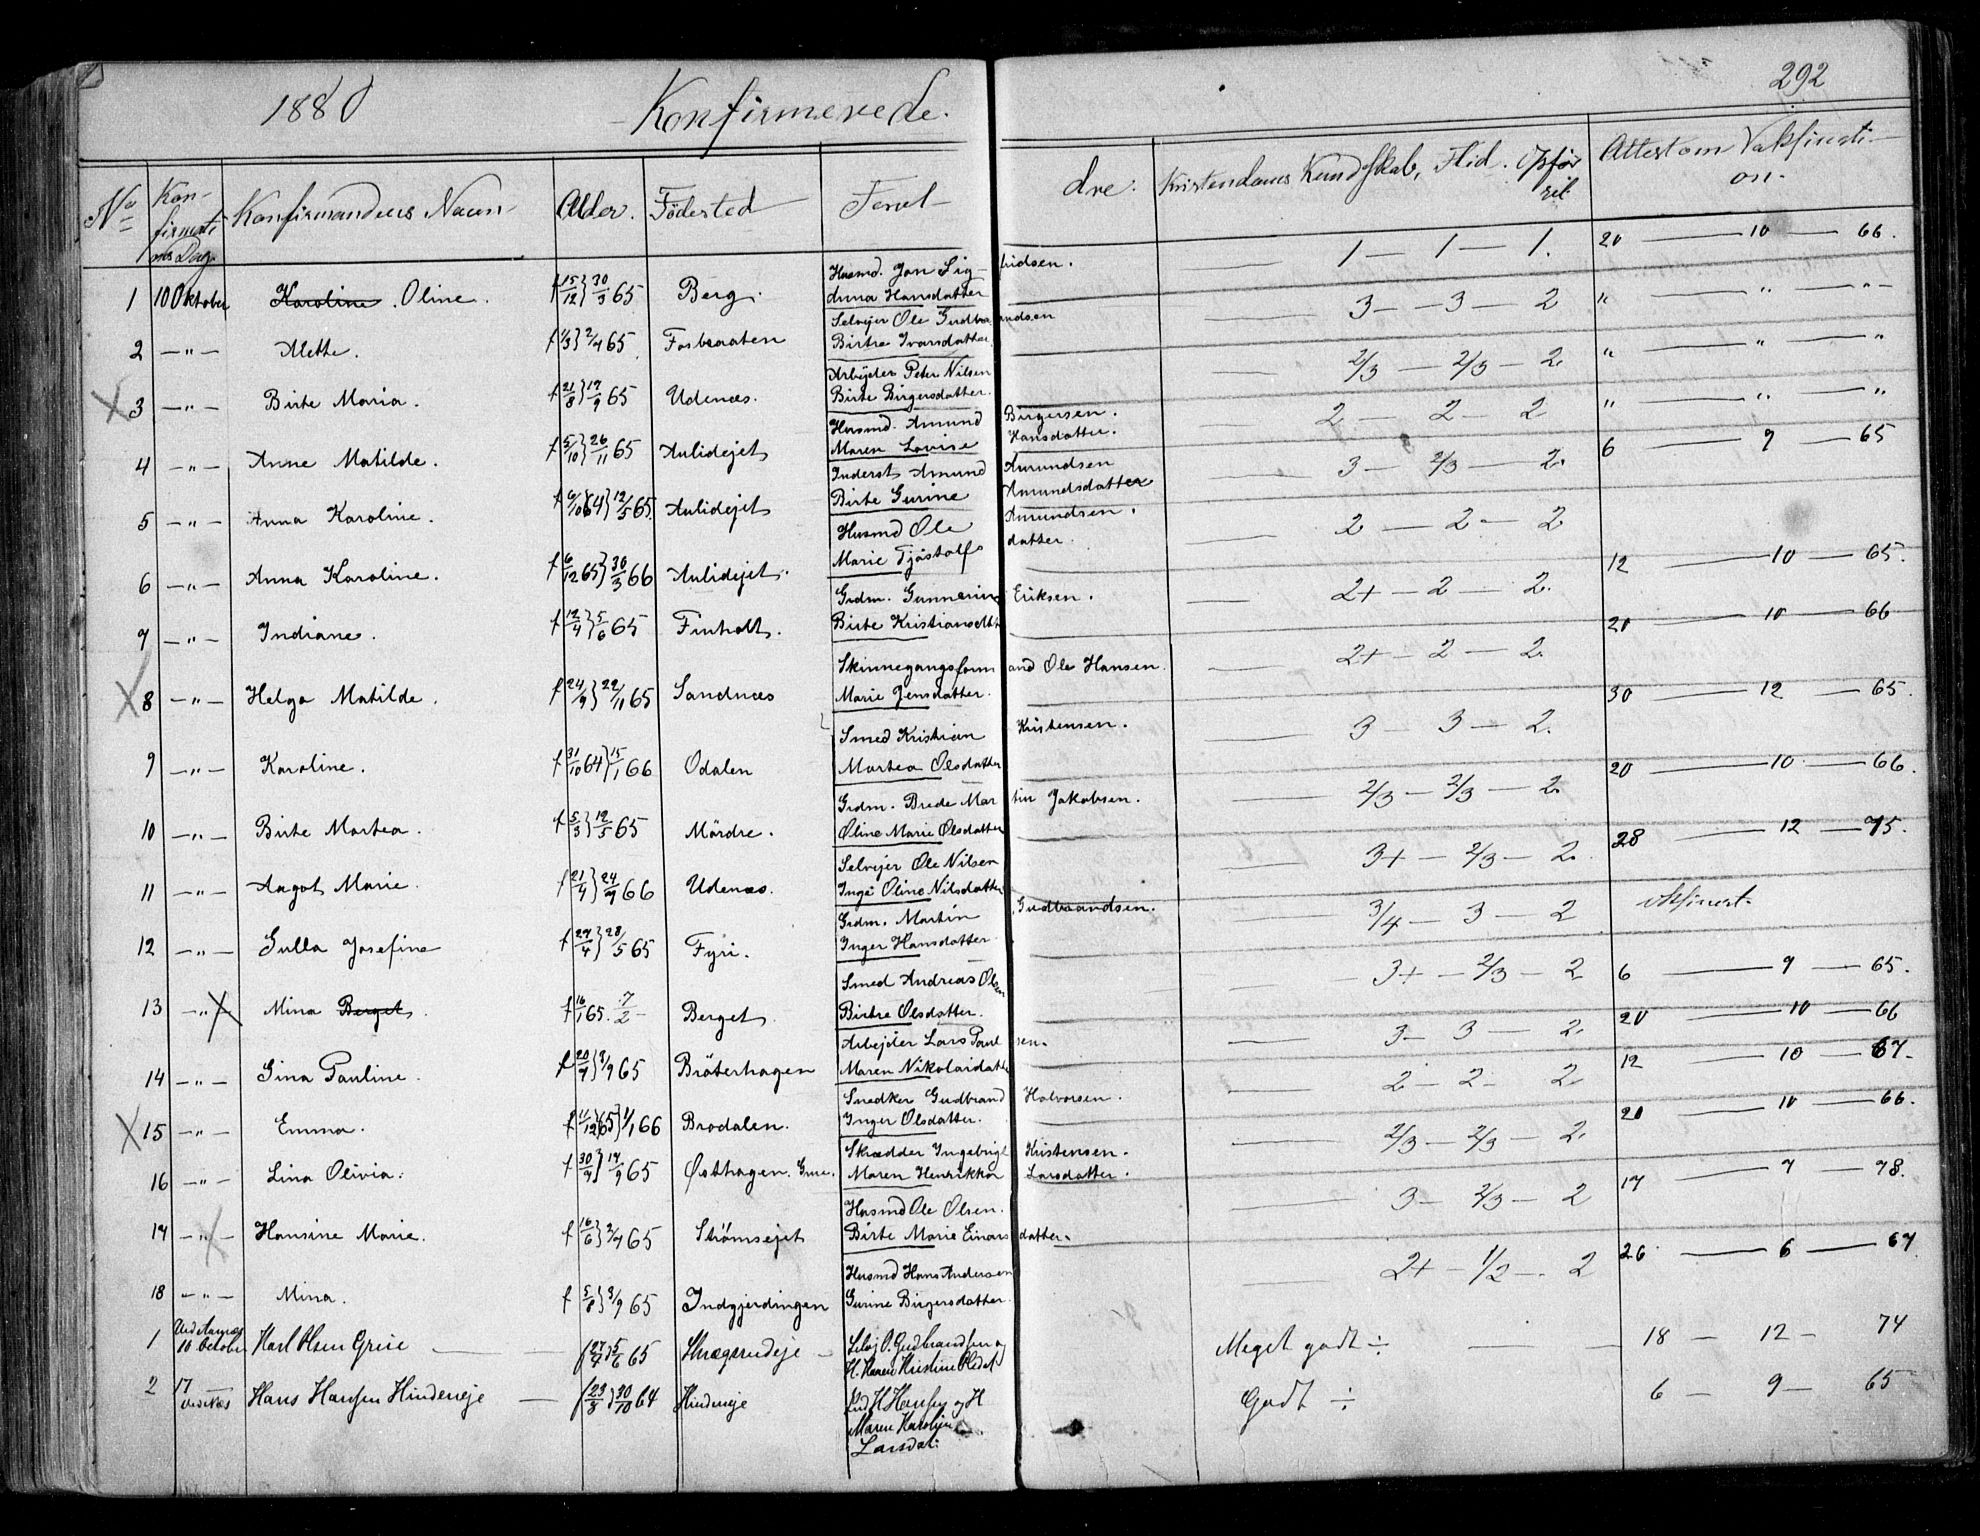 1880 Konfirmerede. 292
No Konfirmations Dag. Konfirmandens Navn Alder. Födested Forel- dre. Kristendoms Kundskab, Flid. Opförsel Attest om Vaksination.
1 10 Oktober Karoline. Oline. f 15/12 } 30/3 65 Berg. Husmd. Jon Sig- fridsen. 1 — 1 — 1. 20 — 10 — 66.
Anna Hansdatter
2 — " — Mette. f 1/3 } 2/4 65 Fosbraaten Selvejer Ole Gudbrandsen 3 — 3 — 2 " — " — "
Birtre Ivarsdatter.
3 — " — Birte Maria. f 21/8 } 17/9 65 Udenæs. Arbejder Peter Nilsen 2/3 — 2/3 — 2. " — " — "
Birte Birgersdatter.
4 — " — Anne Matilde. f 5/10 } 26/11 65 Aulidejet Husmd. Amund Birgersen. 2 — 2 — 2 " — " — "
Maren Lovise Hansdatter.
5 — " — Anna Karoline. f 6/10 64 } 12/5 65. Aulidejet Inderst Amund Amundsen 3 — 2/3 — 2. 6 — 9 — 65
Birte Gurine Amundsdatter
6 — " — Anna Karoline. f 6/12 65 } 30/3 66 Aulidejet. Husmd Ole Amundsen. 2 — 2 — 2
Marie Tjöstolfs datter.
7 — " — Indiane. f 12/4 } 5/6 65 Finholt. Grdm. Gunnerius Eriksen. 2+ — 2 — 2. 12 — 10 — 65.
Birte Kristiansdtt
8 — " — Helga Matilde. f 24/9 } 22/11 65 Sandnæs Skinnegangsformand Ole Hansen. 2+ — 2 — 2. 20 — 10 — 66
Marie Jensdatter.
9 — " — Karoline. f 31/10 64 } 15/1 66 Odalen Smed Kristian Kristensen. 3 — 3 — 2. 30 — 12 — 65.
Martea Olsdatter
10 — " — Birte Martea. f 5/3 } 12/5 65 Mördre. Grdm. Brede Martin Jakobsen. 2/3 — 2/3 — 2. 20 — 10 — 66.
Oline Marie Olsdatter
11 — " — Aagot Marie. f 21/4 } 24/9 66 Udenæs. Selvejer Ole Nilsen 3+ — 2/3 — 2. 28 — 12 — 75.
Inge Oline Nilsdatter
12 — " — Gulla Josefine f 27/4 } 28/5 65 Fyri. Grdm. Martin Gudbrandsen. 3/4 — 3 — 2
Inger Hansdatter
13 — " — Mina Berget. f 16/1 65. 7/2 — Berget. Smed Andreas Olsen 3+ — 2/3 — 2 6 — 9 — 65.
Birtre Olsdatter.
14 — " — Gina Pauline. f 20/7 } 3/9 65 Bröterhagen Arbejder Lars Paulsen. 3 — 3 — 2. 20 — 10 — 66
Maren Nikolaidatter
15 — " — Emma. f 11/12 65 } 1/1 66 Brodalen. Snedker Gudbrand Halvorsen. 2 — 2 — 2 12 — 10 — 67.
Inger Olsdatter.
16 — " — Lina Olivia. f 30/7 } 17/9 65 Østhagen. Grue. Skrædder Ingebrigt Kristensen. 2/3 — 2/3 — 2. 20 — 10 — 66.
Maren Henrikka Larsdatter.
17 — " — Hansine Marie. f 16/6 } 2/7 65 Strömsejet Husmd Ole Olsen. 3 — 2/3 — 2 17 — 7 — 78.
Birte Marie Einarsdatter.
18 — " — Mina. f 5/8 } 3/9 65 Indgjerdingen Husmd Hans Andersen 2+ — 1/2 — 2 26 — 6 — 67
Gurine Birgersdatter.
1 Ved Aarnæs 10 October Karl Olsen Grue f 27/4 } 5/6 65 Skogsrudeje Selvej O. Gudbrandsen og Meget godt ÷ 18 — 12 — 74
H. Karen Kristine Olsdat
2 17 Ved Næs Hans Hansen Hindereje f 23/8 } 30/10 64 Hindereje Ind H Hansen og H Godt ÷ 6 — 9 — 65
Maren Karoline
Larsdat: